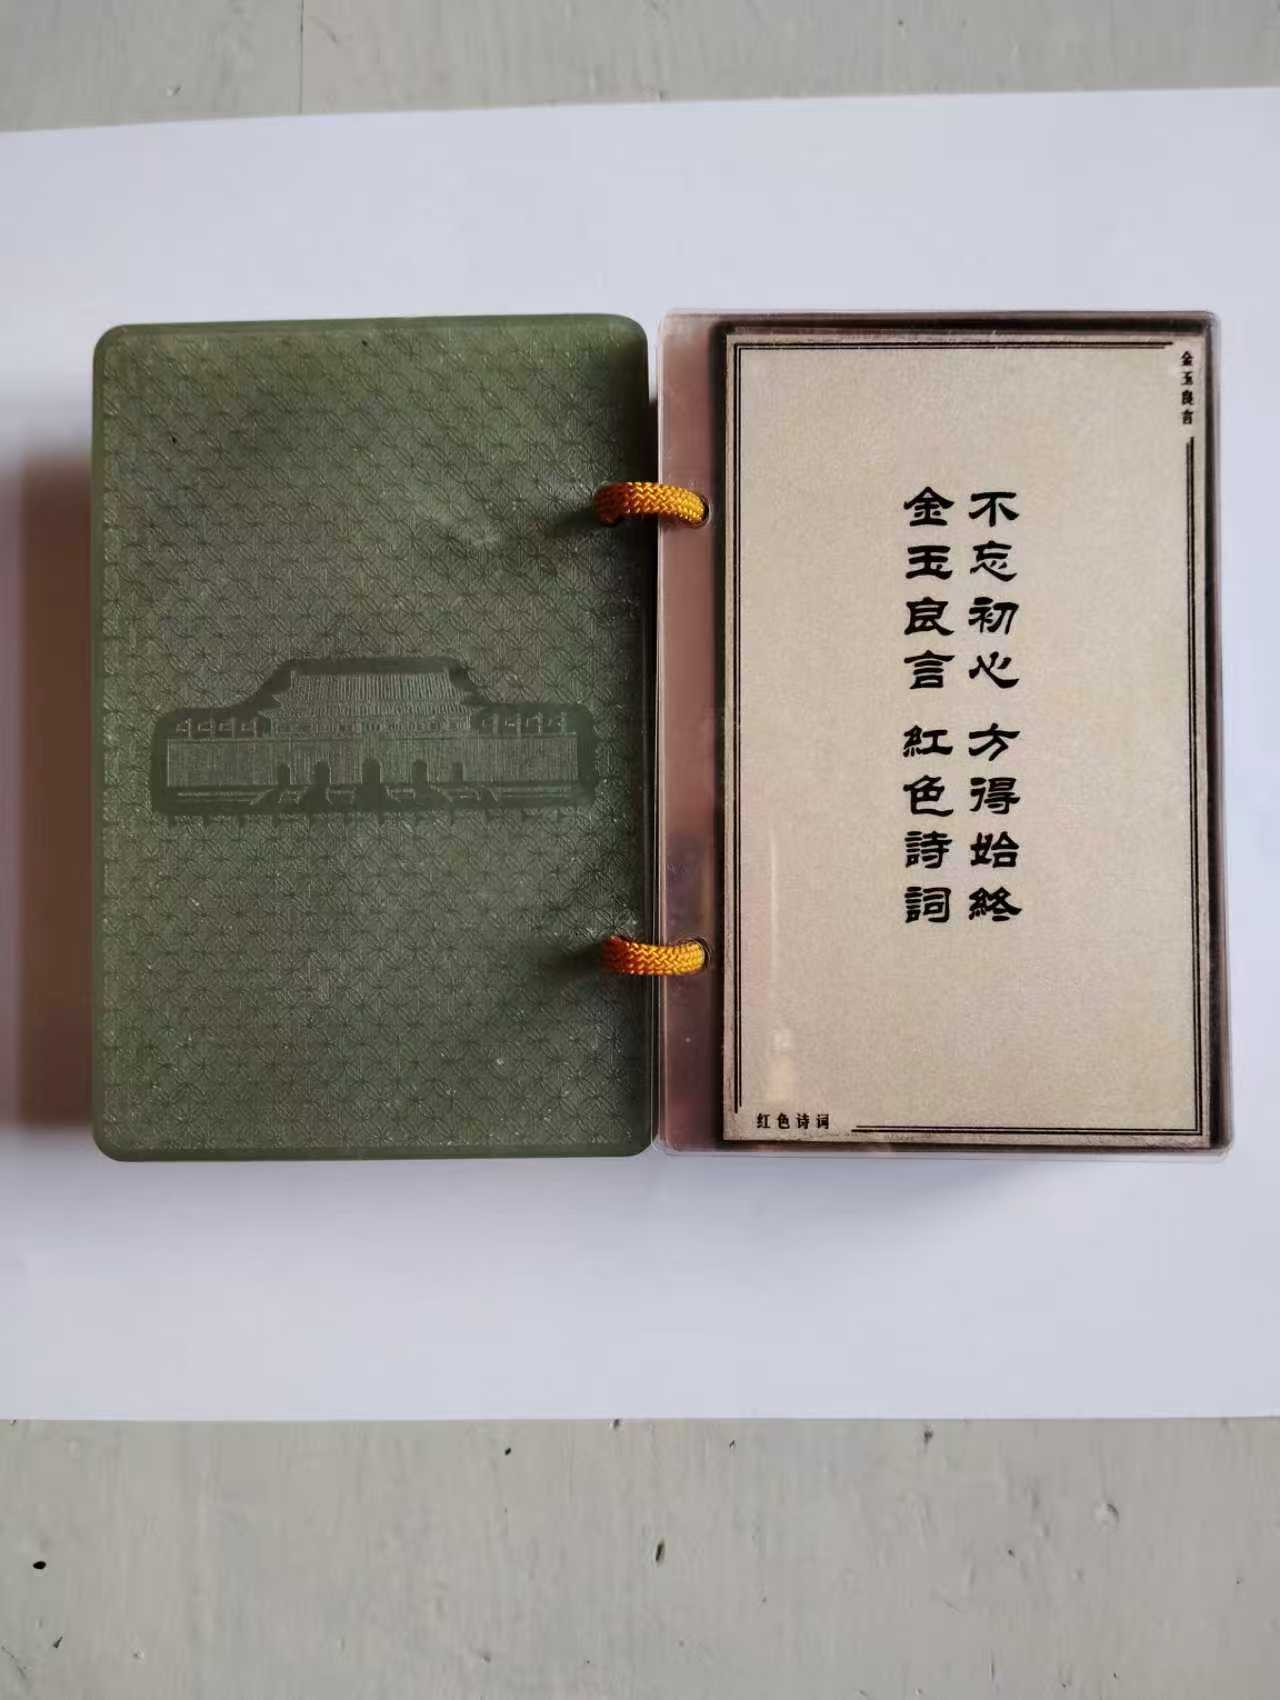 金玉良言
不忘初心 方得始終
金玉良言 紅色詩詞
红色诗词